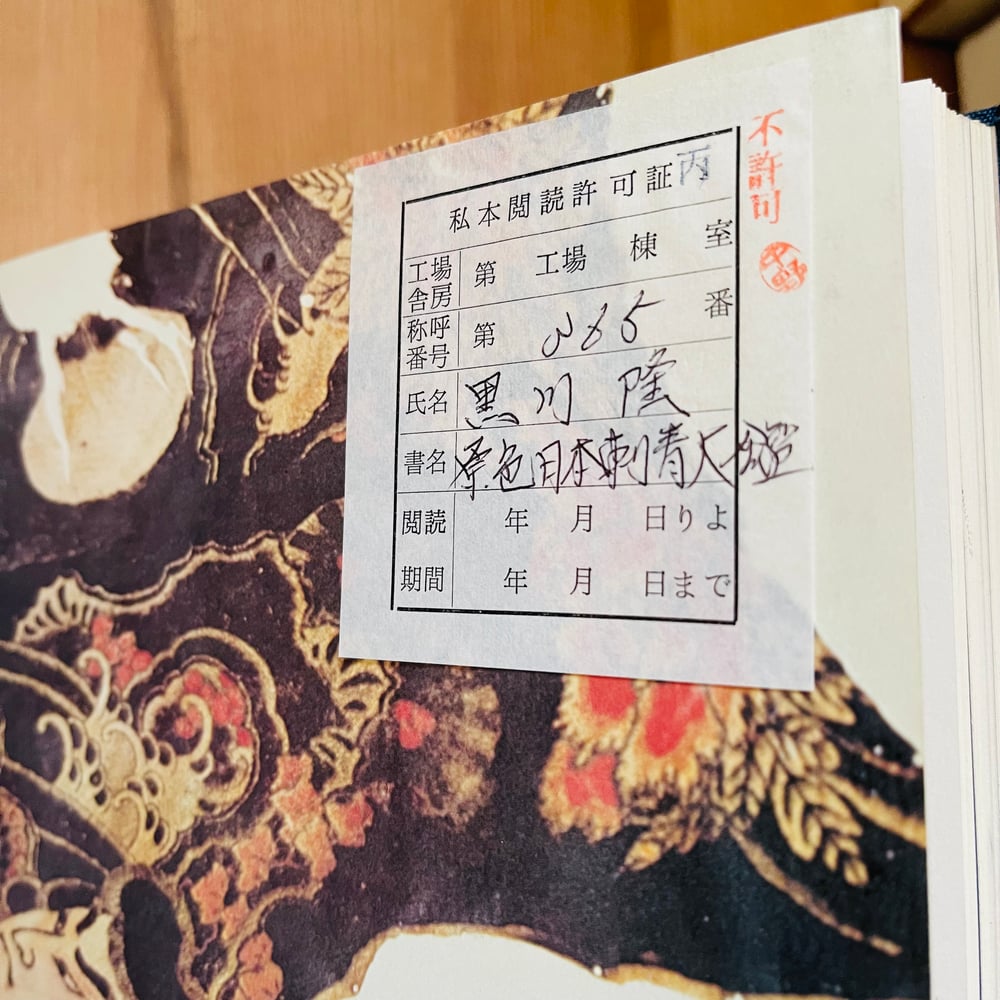 私本閲読許可証丙
工場舎房 第 工場 棟 室
称呼番号 第 365 番
氏名 黒川 隆
書名 原色日本刺青大鑑
閲読 年 月 日りよ
期間 年 月 日まで
不許可
中野